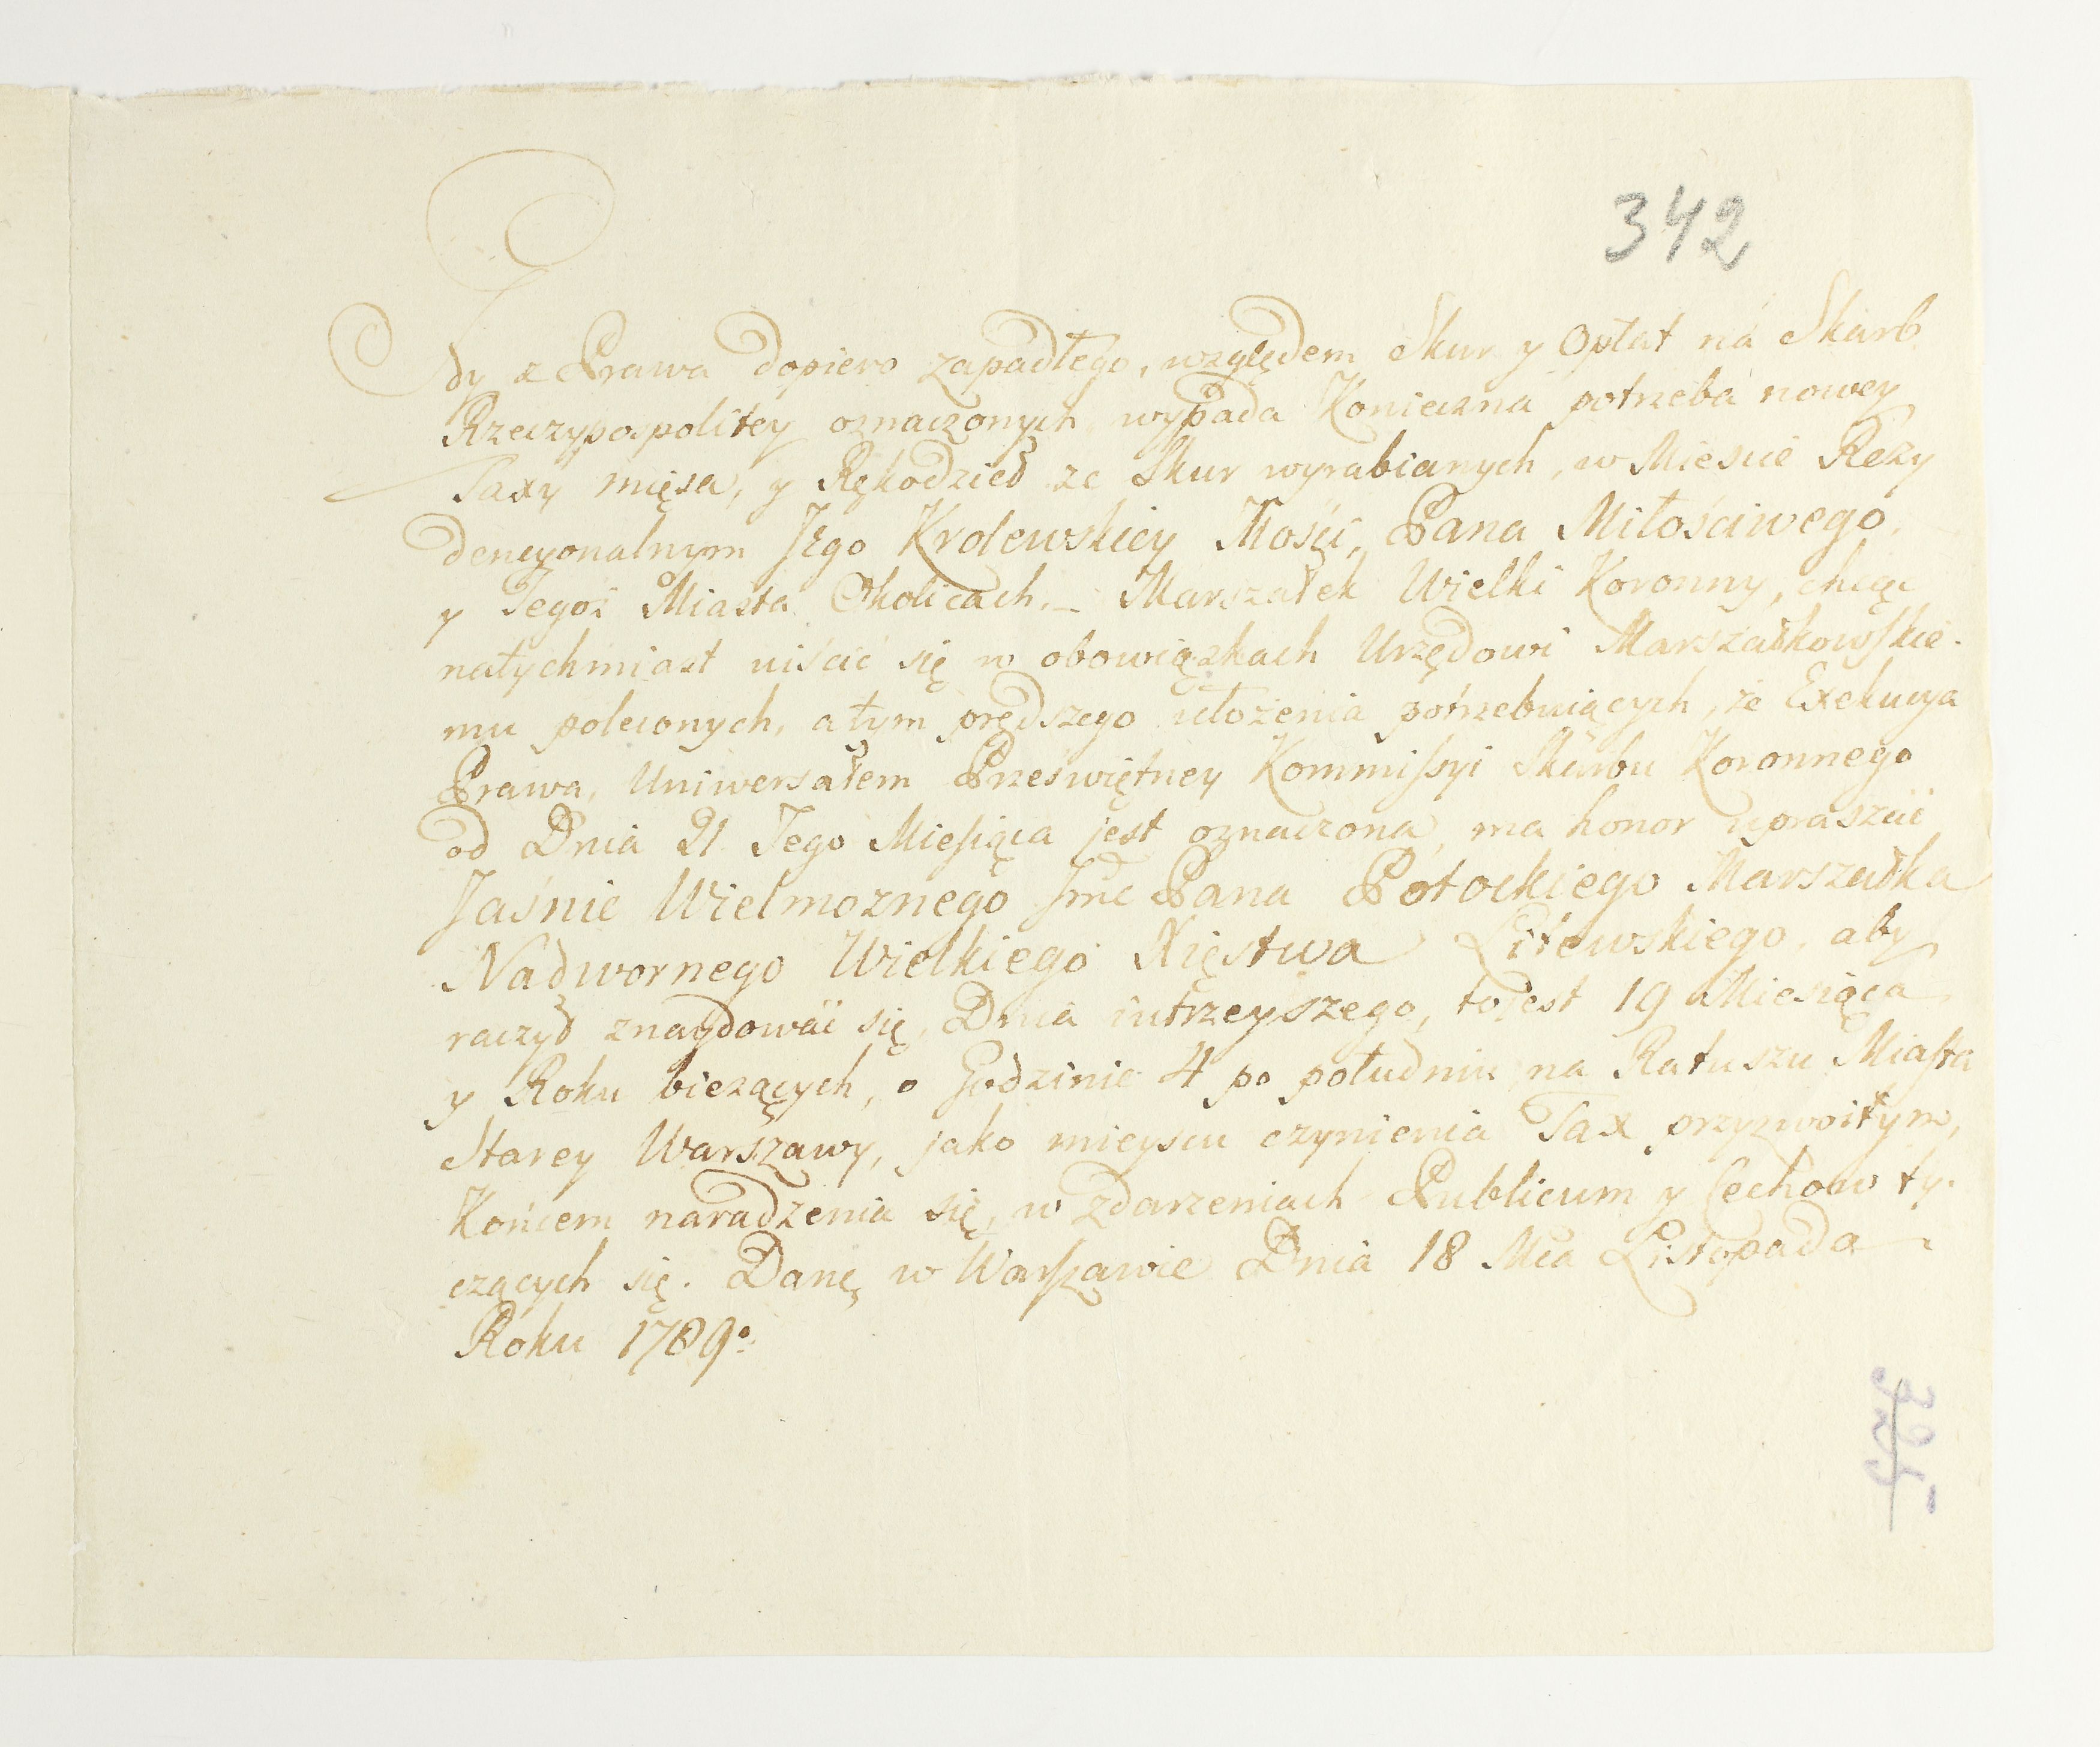 342
Gdy z Prawa dopiero zapadłego, względem Skur y Opłat na Skarb
Rzeczypospolitey oznaczonych, wypada Konieczna potrzeba nowey
Taxy mięsa, y Rękodzieł ze Skur wyrabianych, w Mieście Rezy
dencyonalnym Jego Krolewskiey Mości, Pana Miłościwego,
y Tegoż Miasta Okolicach. – Marszałek Wielki Koronny, chcąc
natychmiast uiścić się w obowiązkach Urzędowi Marszałkowskie-
mu poleconych, a tym prędszego ułożenia potrzebuiących, że Exekucya
Prawa, Uniwersałem Przeświętney Kommissyi Skarbu Koronnego
od Dnia 21 Tego Miesiąca jest oznaczona, ma honor upraszać
Jaśnie Wielmoznego Jmć Pana Potockiego Marszałka
Nadwornego Wielkiego Xięstwa Litewskiego, aby
raczył znaydować się, Dnia iutrzeyszego, to jest 19 Miesiąca
y Roku biezących, o Godzinie 4 po południu na Ratuszu Miasta
Starey Warszawy, jako mieyscu czynienia Tax przyzwoitym,
Końcem naradzenia się, w zdarzeniach Publicum y Cechow ty-
czących się. Dane w Warszawie Dnia 18 Mca Listopada
Roku 1789o